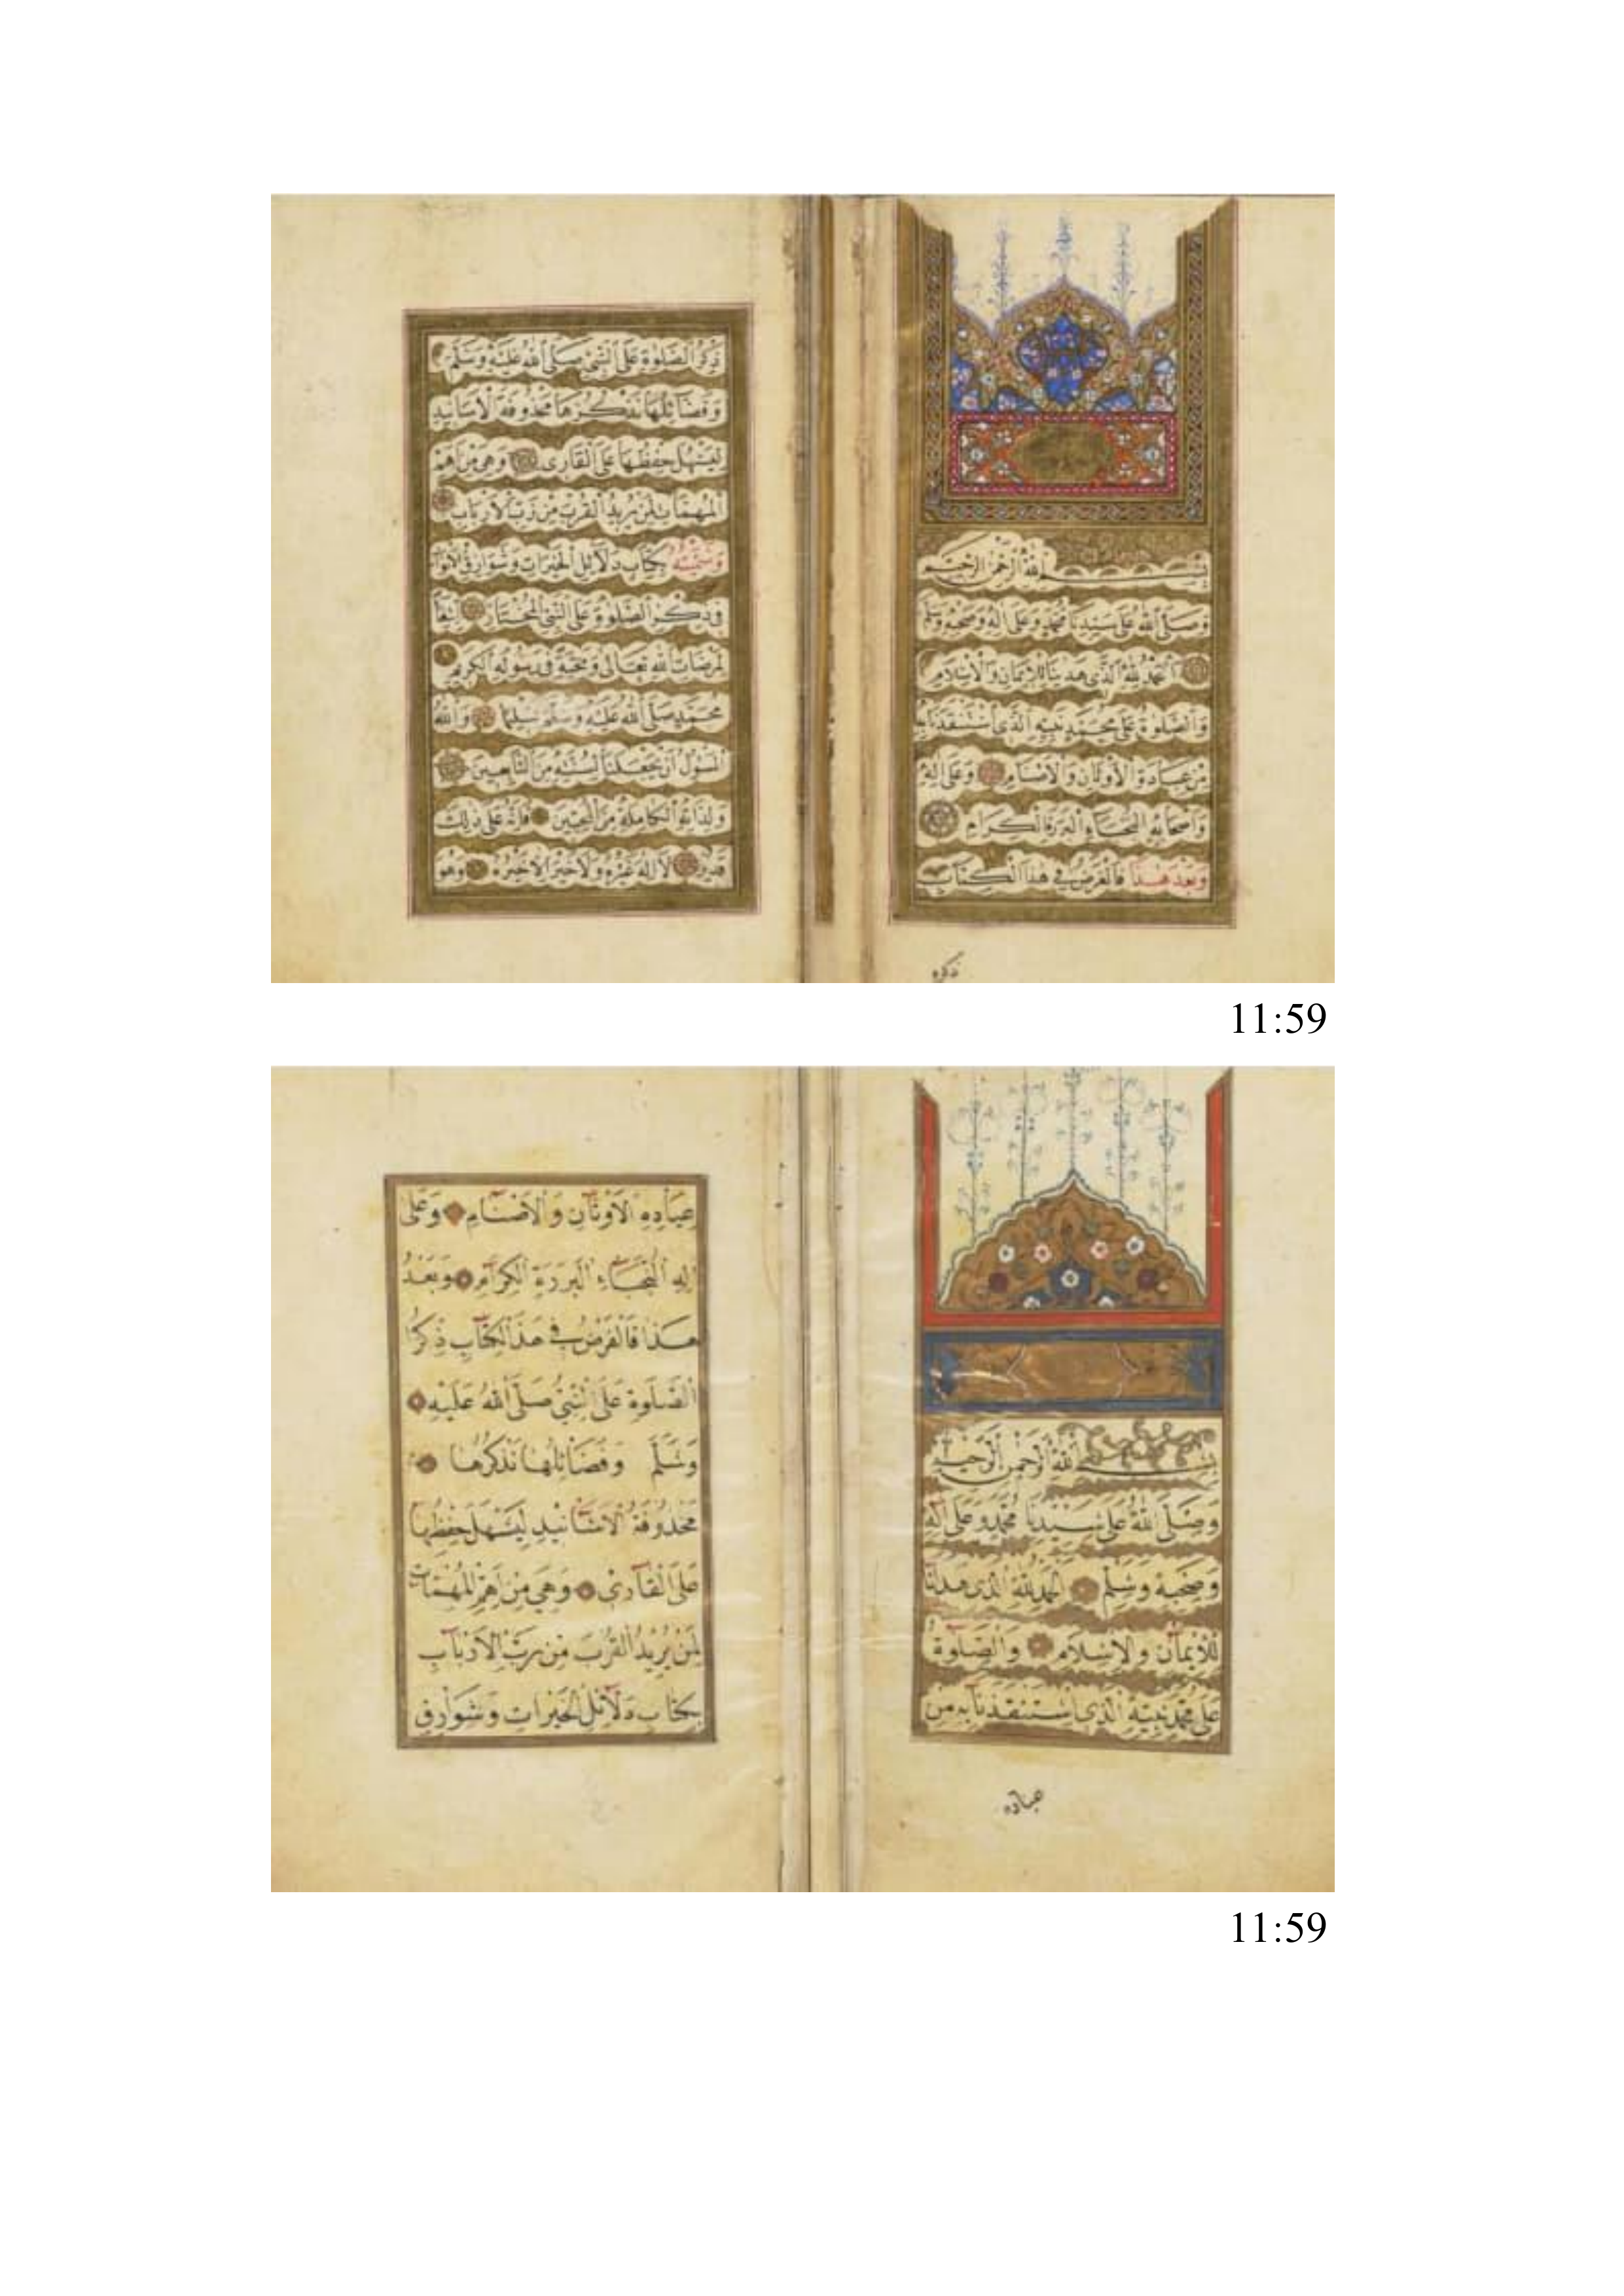 بسم الله الرحمن الرحيم
وصلى الله على سيدنا محمد وعلى آله وصحبه وسلم
الحمد لله الذى هدينا للايمان والاسلام
والصلوة على محمد نبيه الذى استنقذنا به
من عبادة الاوثان والاصنام وعلى اله
واصحابه النجباء البررة الكرام
وبعد هذا فالغرض في هذا الكتاب
ذكره
ذكر الصلوة على النبى صلى الله عليه وسلم
وفضائلها نذكرها محذوفة الاسانيد
ليسهل حفظها على القارى وهى من اهم
المهمات لمن يريد القرب من رب الارباب
وسميته كتاب دلائل الخيرات وشوارق الانوار
فى ذكر الصلوة على النبى المختار ابتغاء
لمرضات الله تعالى ومحبة فى رسوله الكريم
محمد صلى الله عليه وسلم تسليما والله
المسؤل ان يجعلنا لسنته من التابعين
ولذاته الكاملة من المحبين فانه على ذلك
قدير لا اله غيره ولا خير الا خيره وهو
11:59
بسم الله الرحمن الرحيم
وَصَلَّى اللهُ عَلَى سَيِّدِنَا مُحَمَّدٍ وَعَلَى آلِهِ
وصحبه وسلم الحمد لله الذى هدانا
للايمان والاسلام والصلوة
على محمد نبيه الذى استنقذنا به من
عباده
عبادة الاوثان والاصنام وعلى
اله النجباء البررة الكرام وبعد
هذا فالغرض في هذا الكتاب ذكر
الصلوة على النبي صلى الله عليه
وسلم وفضائلها نذكرها
محذوفة الاسانيد ليسهل حفظها
على القارى وهي من اهم المهمات
لمن يريد القرب من رب الارباب
بكتاب دلائل الخيرات وشوارق
11:59